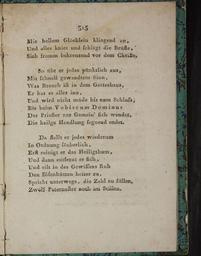 Mit hellem Glöcklein klingend an,
Und alles kniet und schlägt die Brüste,
Sich fromm bekreuzend vor dem Christe.
So übt er jedes pünktlich aus,
Mit schnell gewandtem Sinn,
Was Brauch ist in dem Gotteshaus,
Er hat es alles inn,
Und wird nicht müde bis zum Schluß,
Bis beim Vobiscum Dominus
Der Priester zur Gemein' sich wendet,
Die heilge Handlung segnend endet.
Da stellt er jedes wiederum
In Ordnung säuberlich,
Erst reinigt er das Heiligthum,
Und dann entfernt er sich,
Und eilt in des Gewissens Ruh
Den Eisenhütten heiter zu,
Spricht unterwegs, die Zahl zu füllen,
Zwölf Paternoster noch im Stillen.